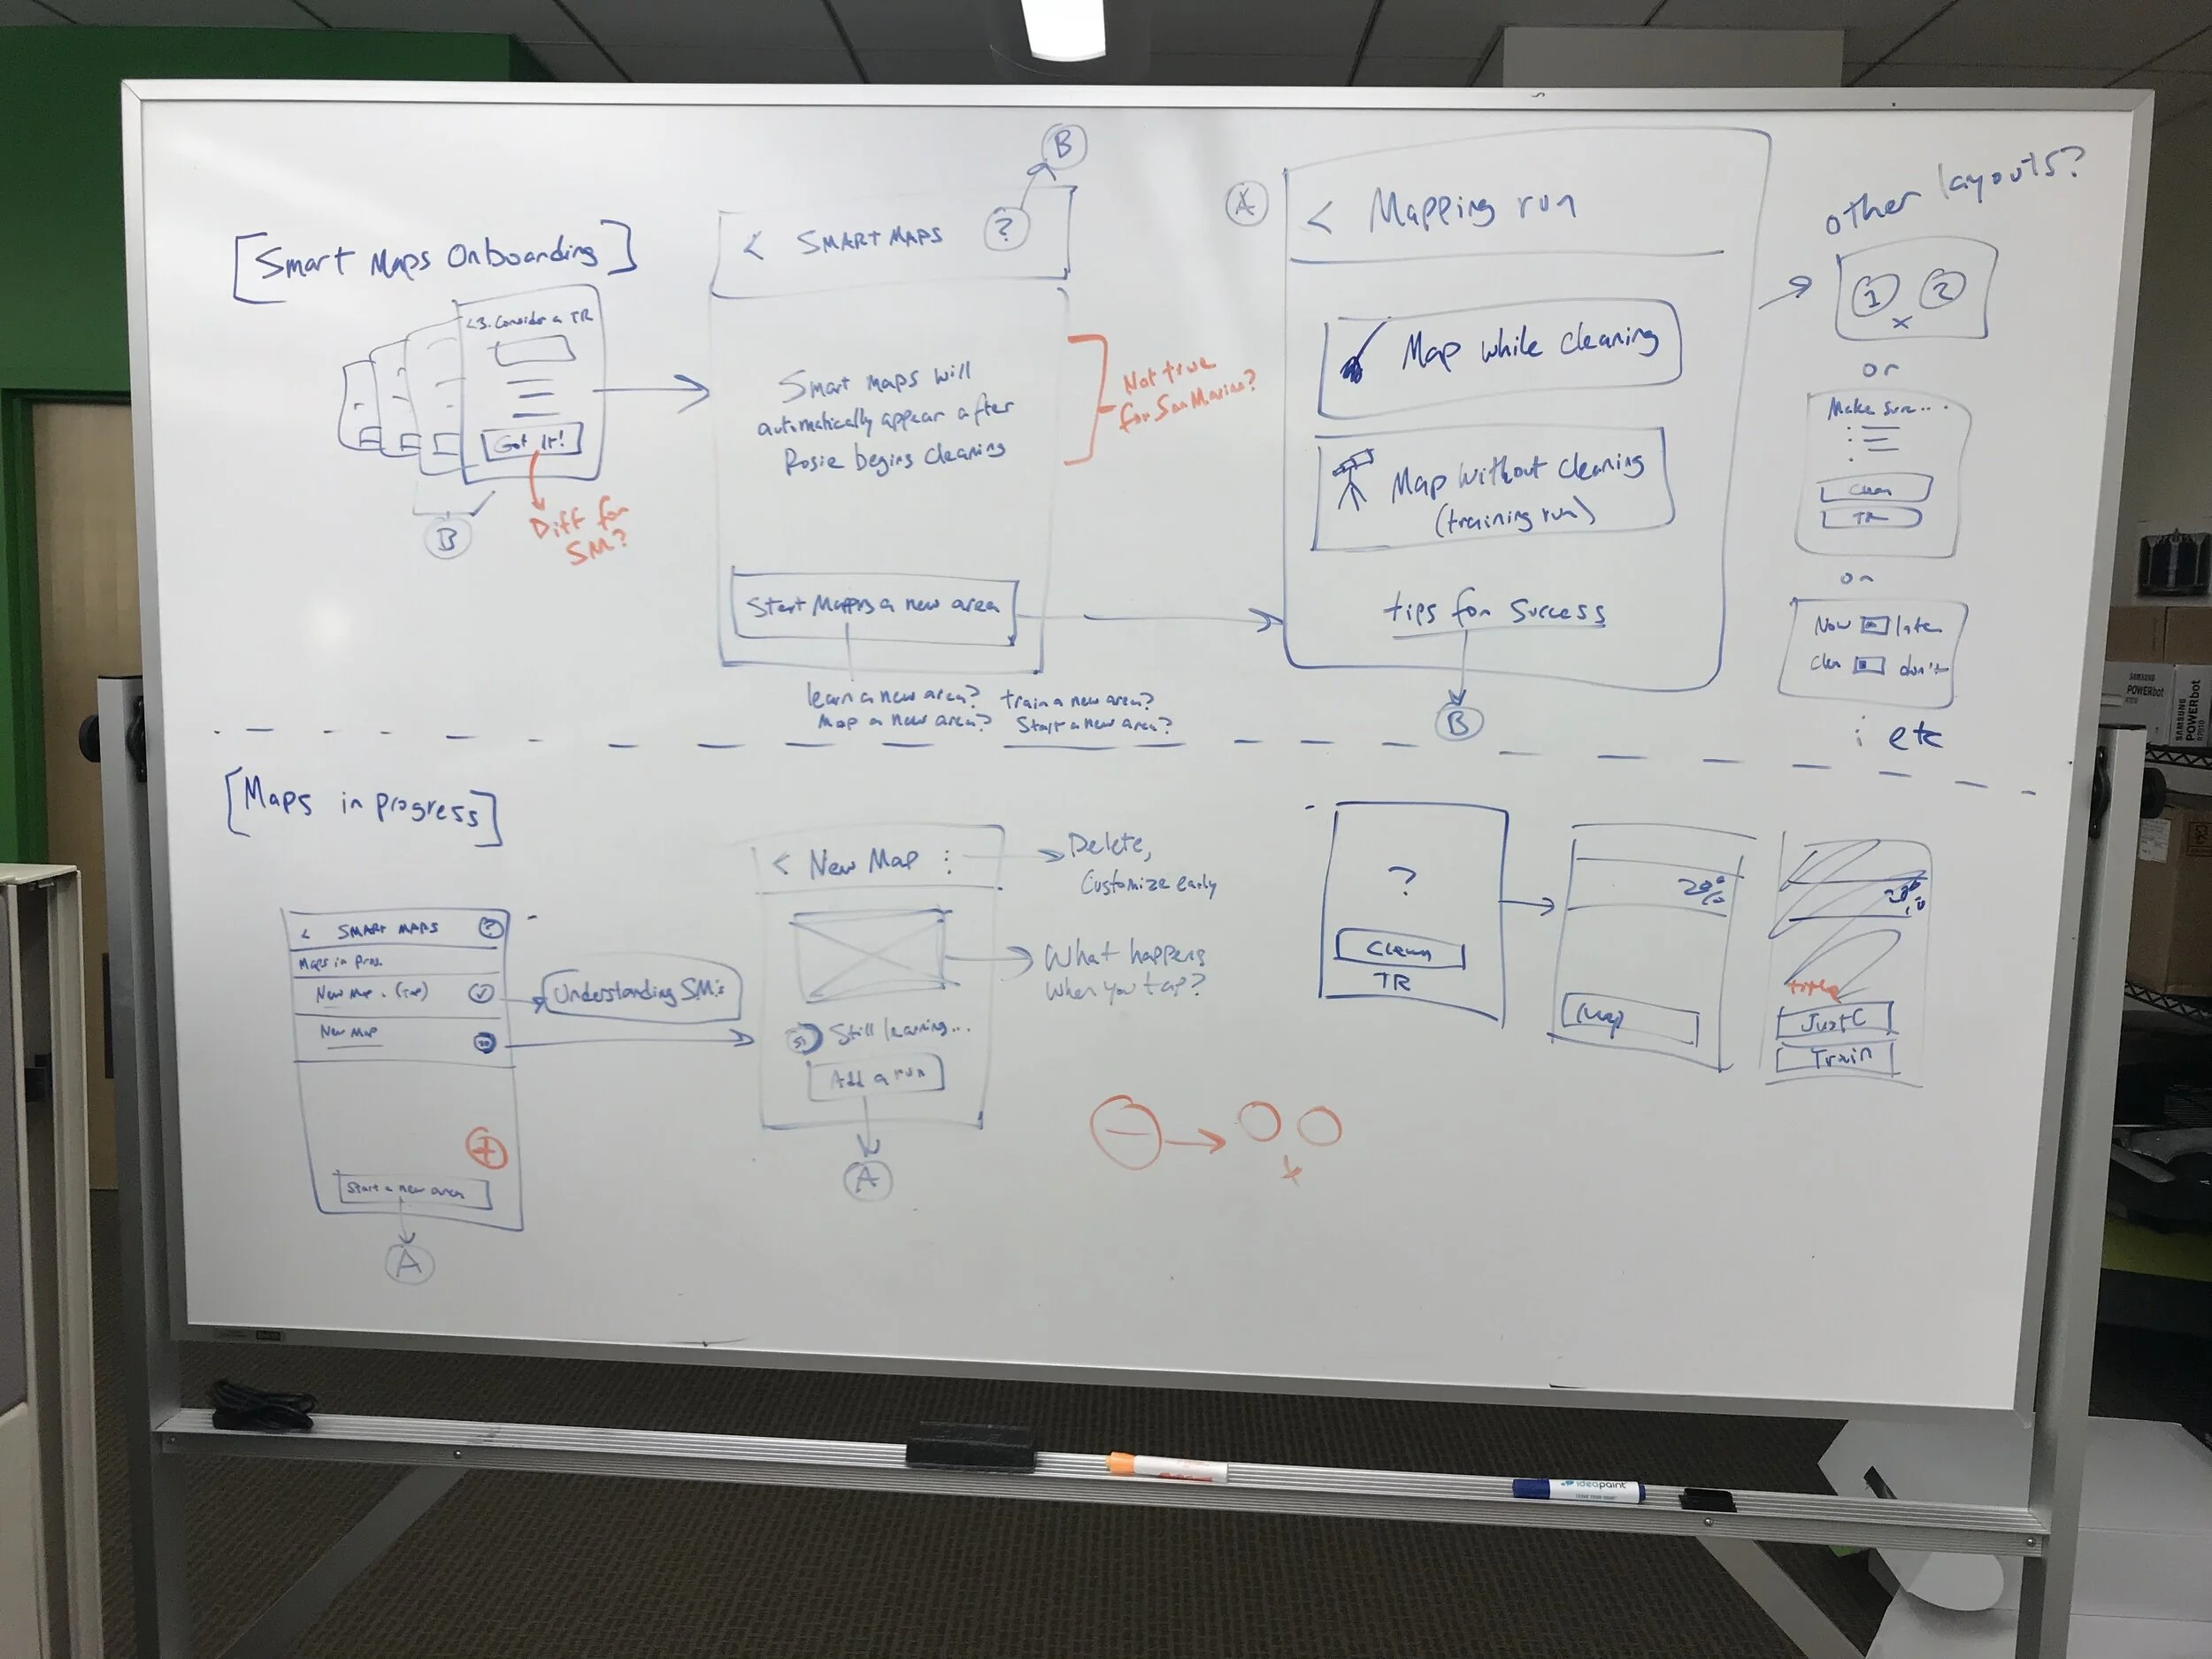 [Smart Maps Onboarding]
<3. Consider a TR
Got It!
B
Diff for
SM?
B
< SMART MAPS ?
Smart maps will
automatically appear after
Rosie begins cleaning
Not true
for San Marino?
Start Mapping a new area
learn a new area? train a new area?
Map a new area? Start a new area?
A
< Mapping run
Map while cleaning
Map without cleaning
(training run)
tips for success
B
other layouts?
1 2
x
or
Make sure...
Clean
TR
or
Now later
Clean don't
etc
[Maps in progress]
< SMART MAPS ?
Maps in prog.
New Map
New Map
+
Start a new area
A
Understanding SMs
< New Map
Delete,
Customize early
What happens
when you tap?
Still learning...
Add a run
A
?
Clean
TR
20%
Map
20%
Just C
Train
SAMSUNG
POWERbot
SAMSUNG
POWERbot
ideapaint